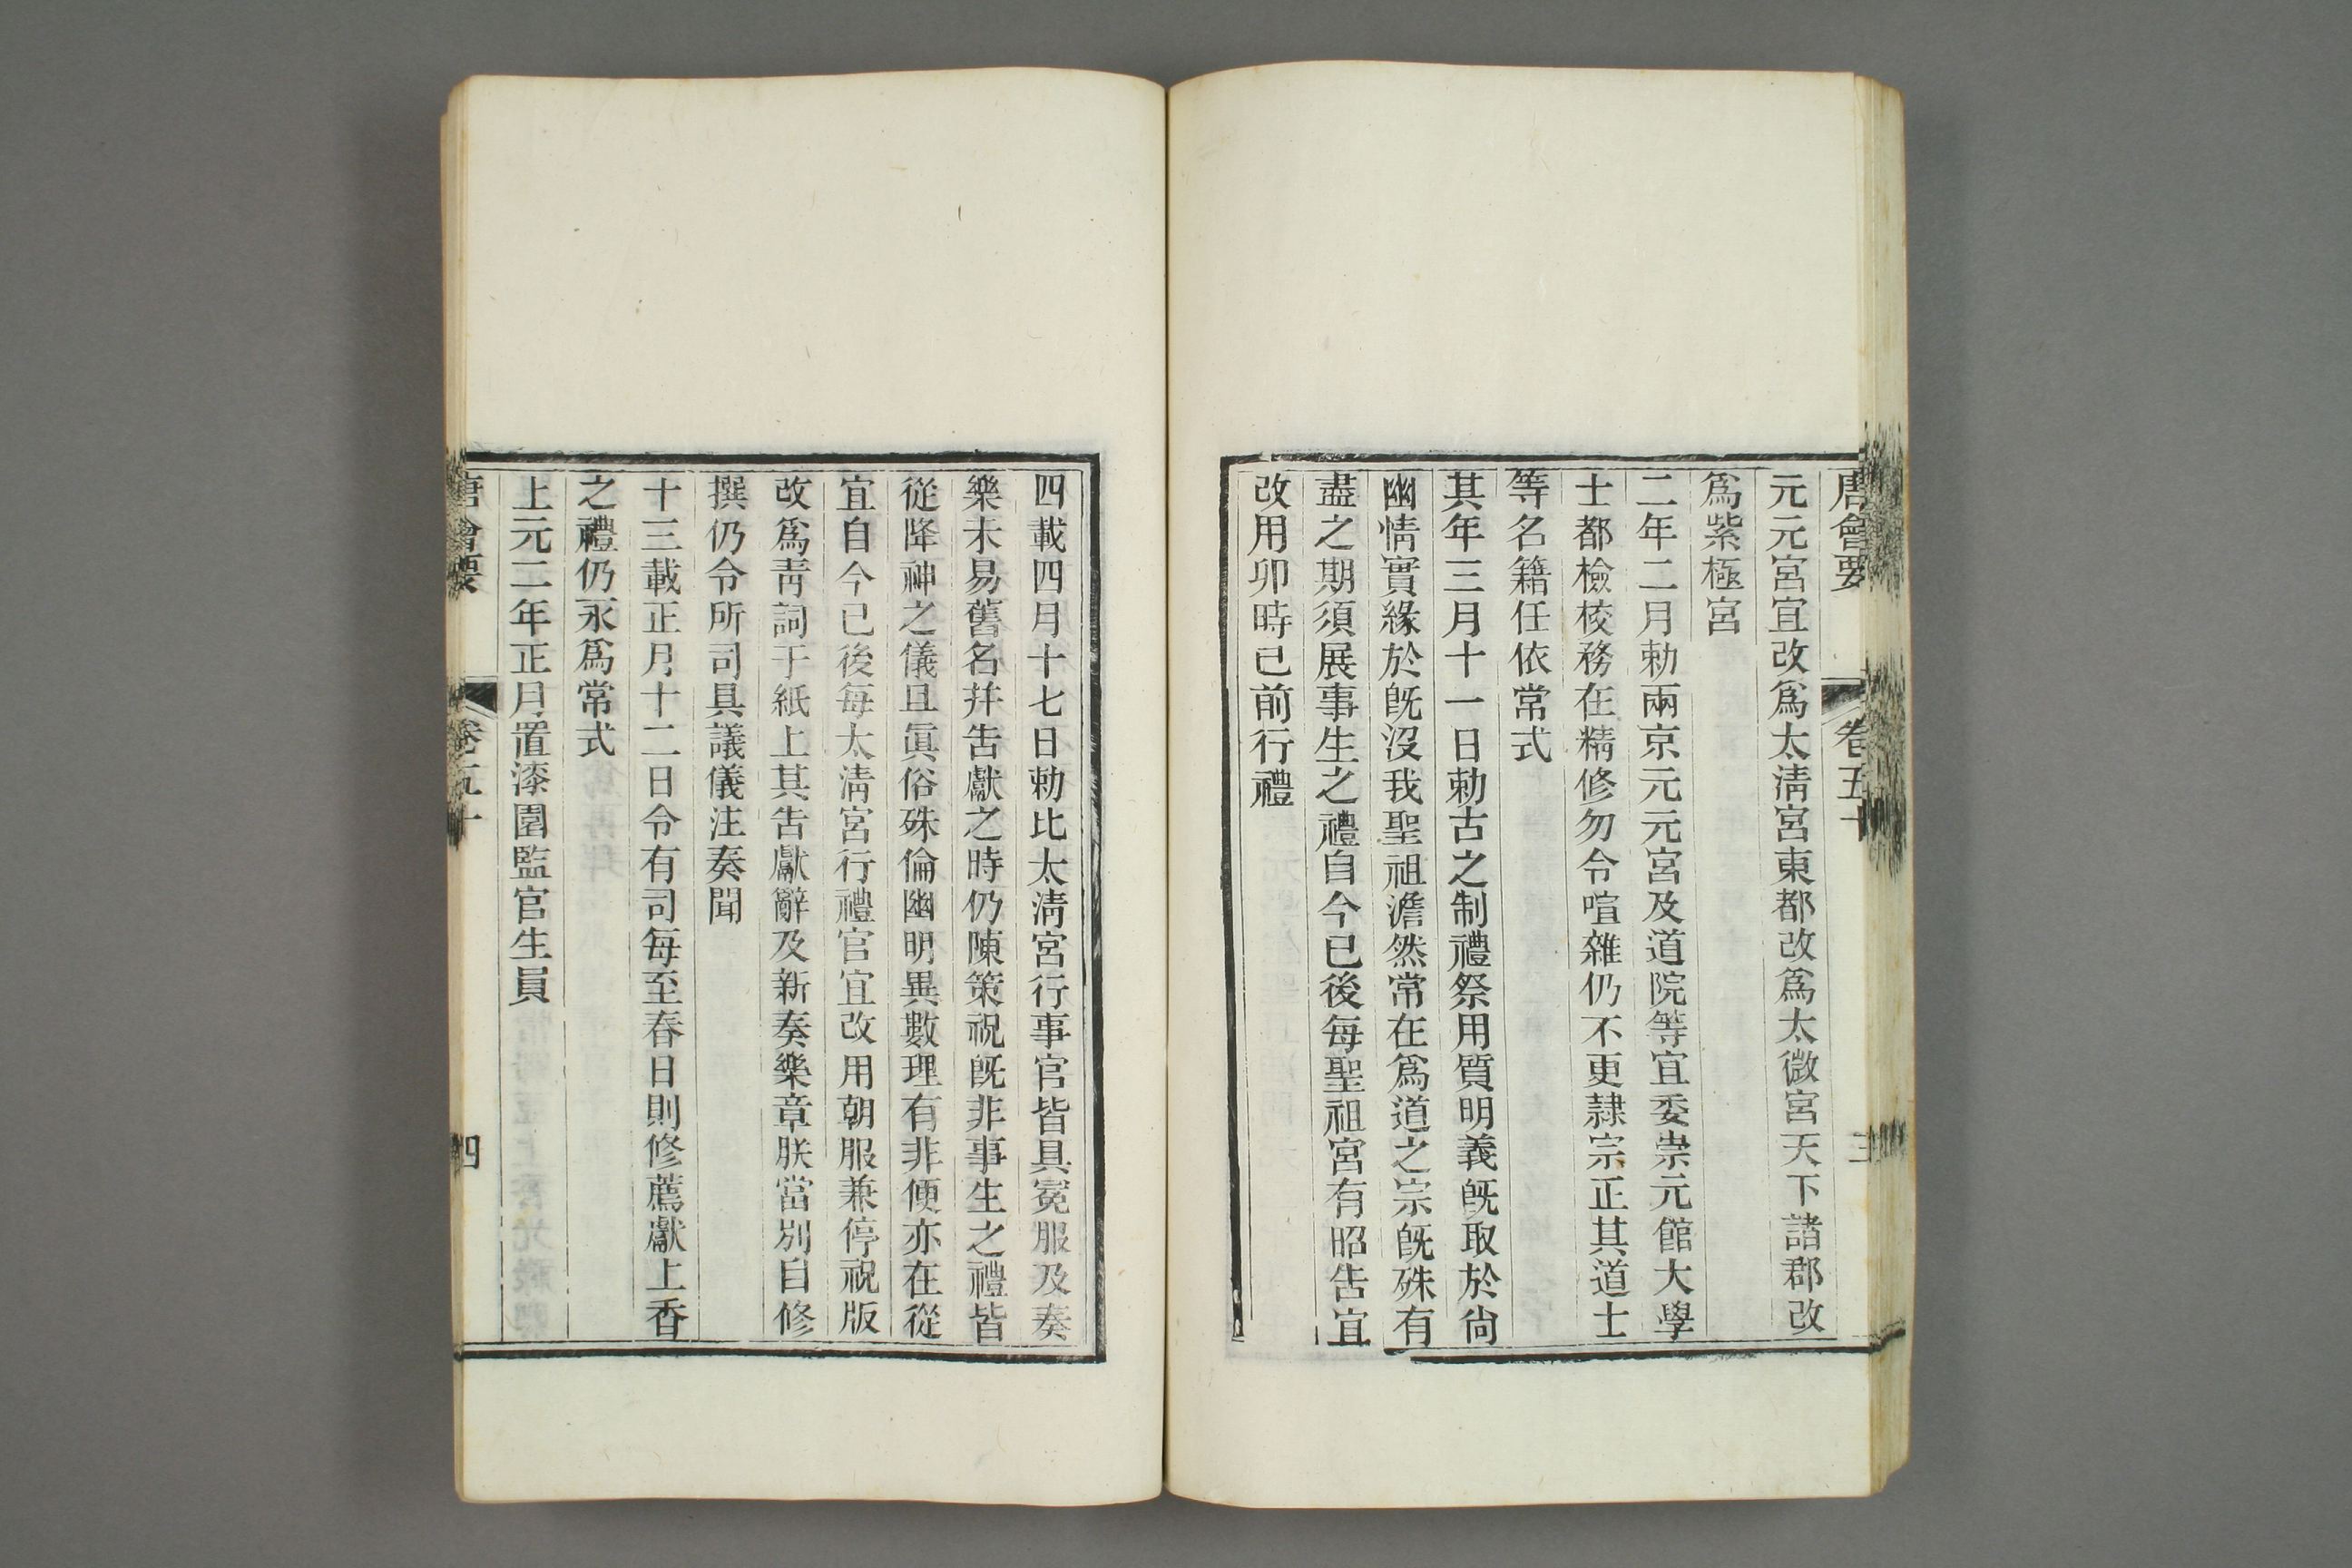 唐會要 卷五十 三
元元宮宜改爲太淸宮東都改爲太微宮天下諸郡改
爲紫極宮
二年二月勅兩京元元宮及道院等宜委崇元館大學
士都檢校務在精修勿令喧雜仍不更隷宗正其道士
等名籍任依常式
其年三月十一日勅古之制禮祭用質明義旣取於尙
幽情實緣於旣沒我聖祖澹然常在爲道之宗旣殊有
盡之期須展事生之禮自今已後每聖祖宮有昭吿宜
改用卯時已前行禮
四載四月十七日勅比太淸宮行事官皆具冕服及奏
樂未易舊名幷吿獻之時仍陳策祝旣非事生之禮皆
從降神之儀且眞俗殊倫幽明異數理有非便亦在從
宜自今已後每太淸宮行禮官宜改用朝服兼停祝版
改爲靑詞于紙上其吿獻辭及新奏樂章朕當別自修
撰仍令所司具議儀注奏聞
十三載正月十二日令有司每至春日則修薦獻上香
之禮仍永爲常式
上元二年正月置漆園監官生員
唐會要 卷五十 四